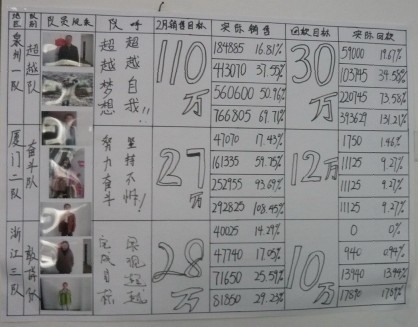 地区 队别 队员风采 队呼 2月销售目标 实际销售 回款目标 实际回款
泉州一队 超越队 超越自我 超越梦想!! 110万 30万
184885 16.81% 59000 19.67%
413070 37.55% 103745 34.58%
560600 50.96% 220745 73.58%
766805 69.71% 393629 131.21%
厦门二队 奋斗队 坚持不懈 努力奋斗! 27万 12万
47070 17.43% 1750 1.46%
161335 59.75% 11125 9.27%
252955 93.69% 11125 9.27%
292825 108.45% 11125 9.27%
浙江三队 完成目标 28万 10万
40025 14.29% 0 0%
47740 17.05% 940 0.94%
71650 25.59% 13940 13.94%
81850 29.23% 17890 17.89%